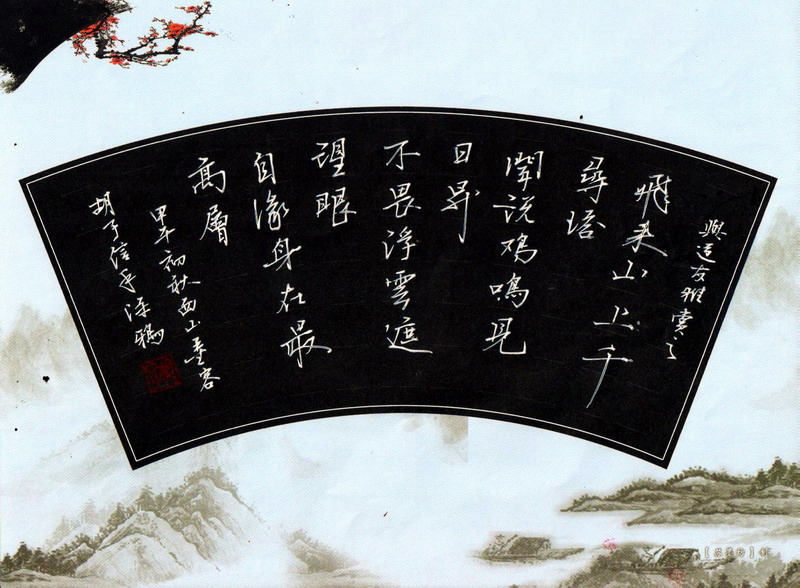 與道友雅賞之
飛来山上千
尋塔
聞説鸡鳴見
日昇
不畏浮雲遮
望眼
自缘身在最
高層
甲午初秋西山墨客
信手涂鴉